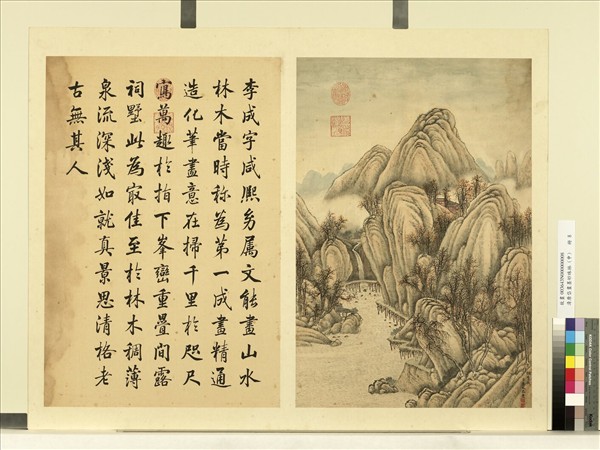 李成字咸熙多属文能畫山水
林木當時称為第一成畫精通
造化筆盡意在掃千里於咫尺
寫萬趣於指下峯巒重疊間露
祠墅此為冣佳至於林木稠薄
泉流深淺如就真景思清格老
古無其人